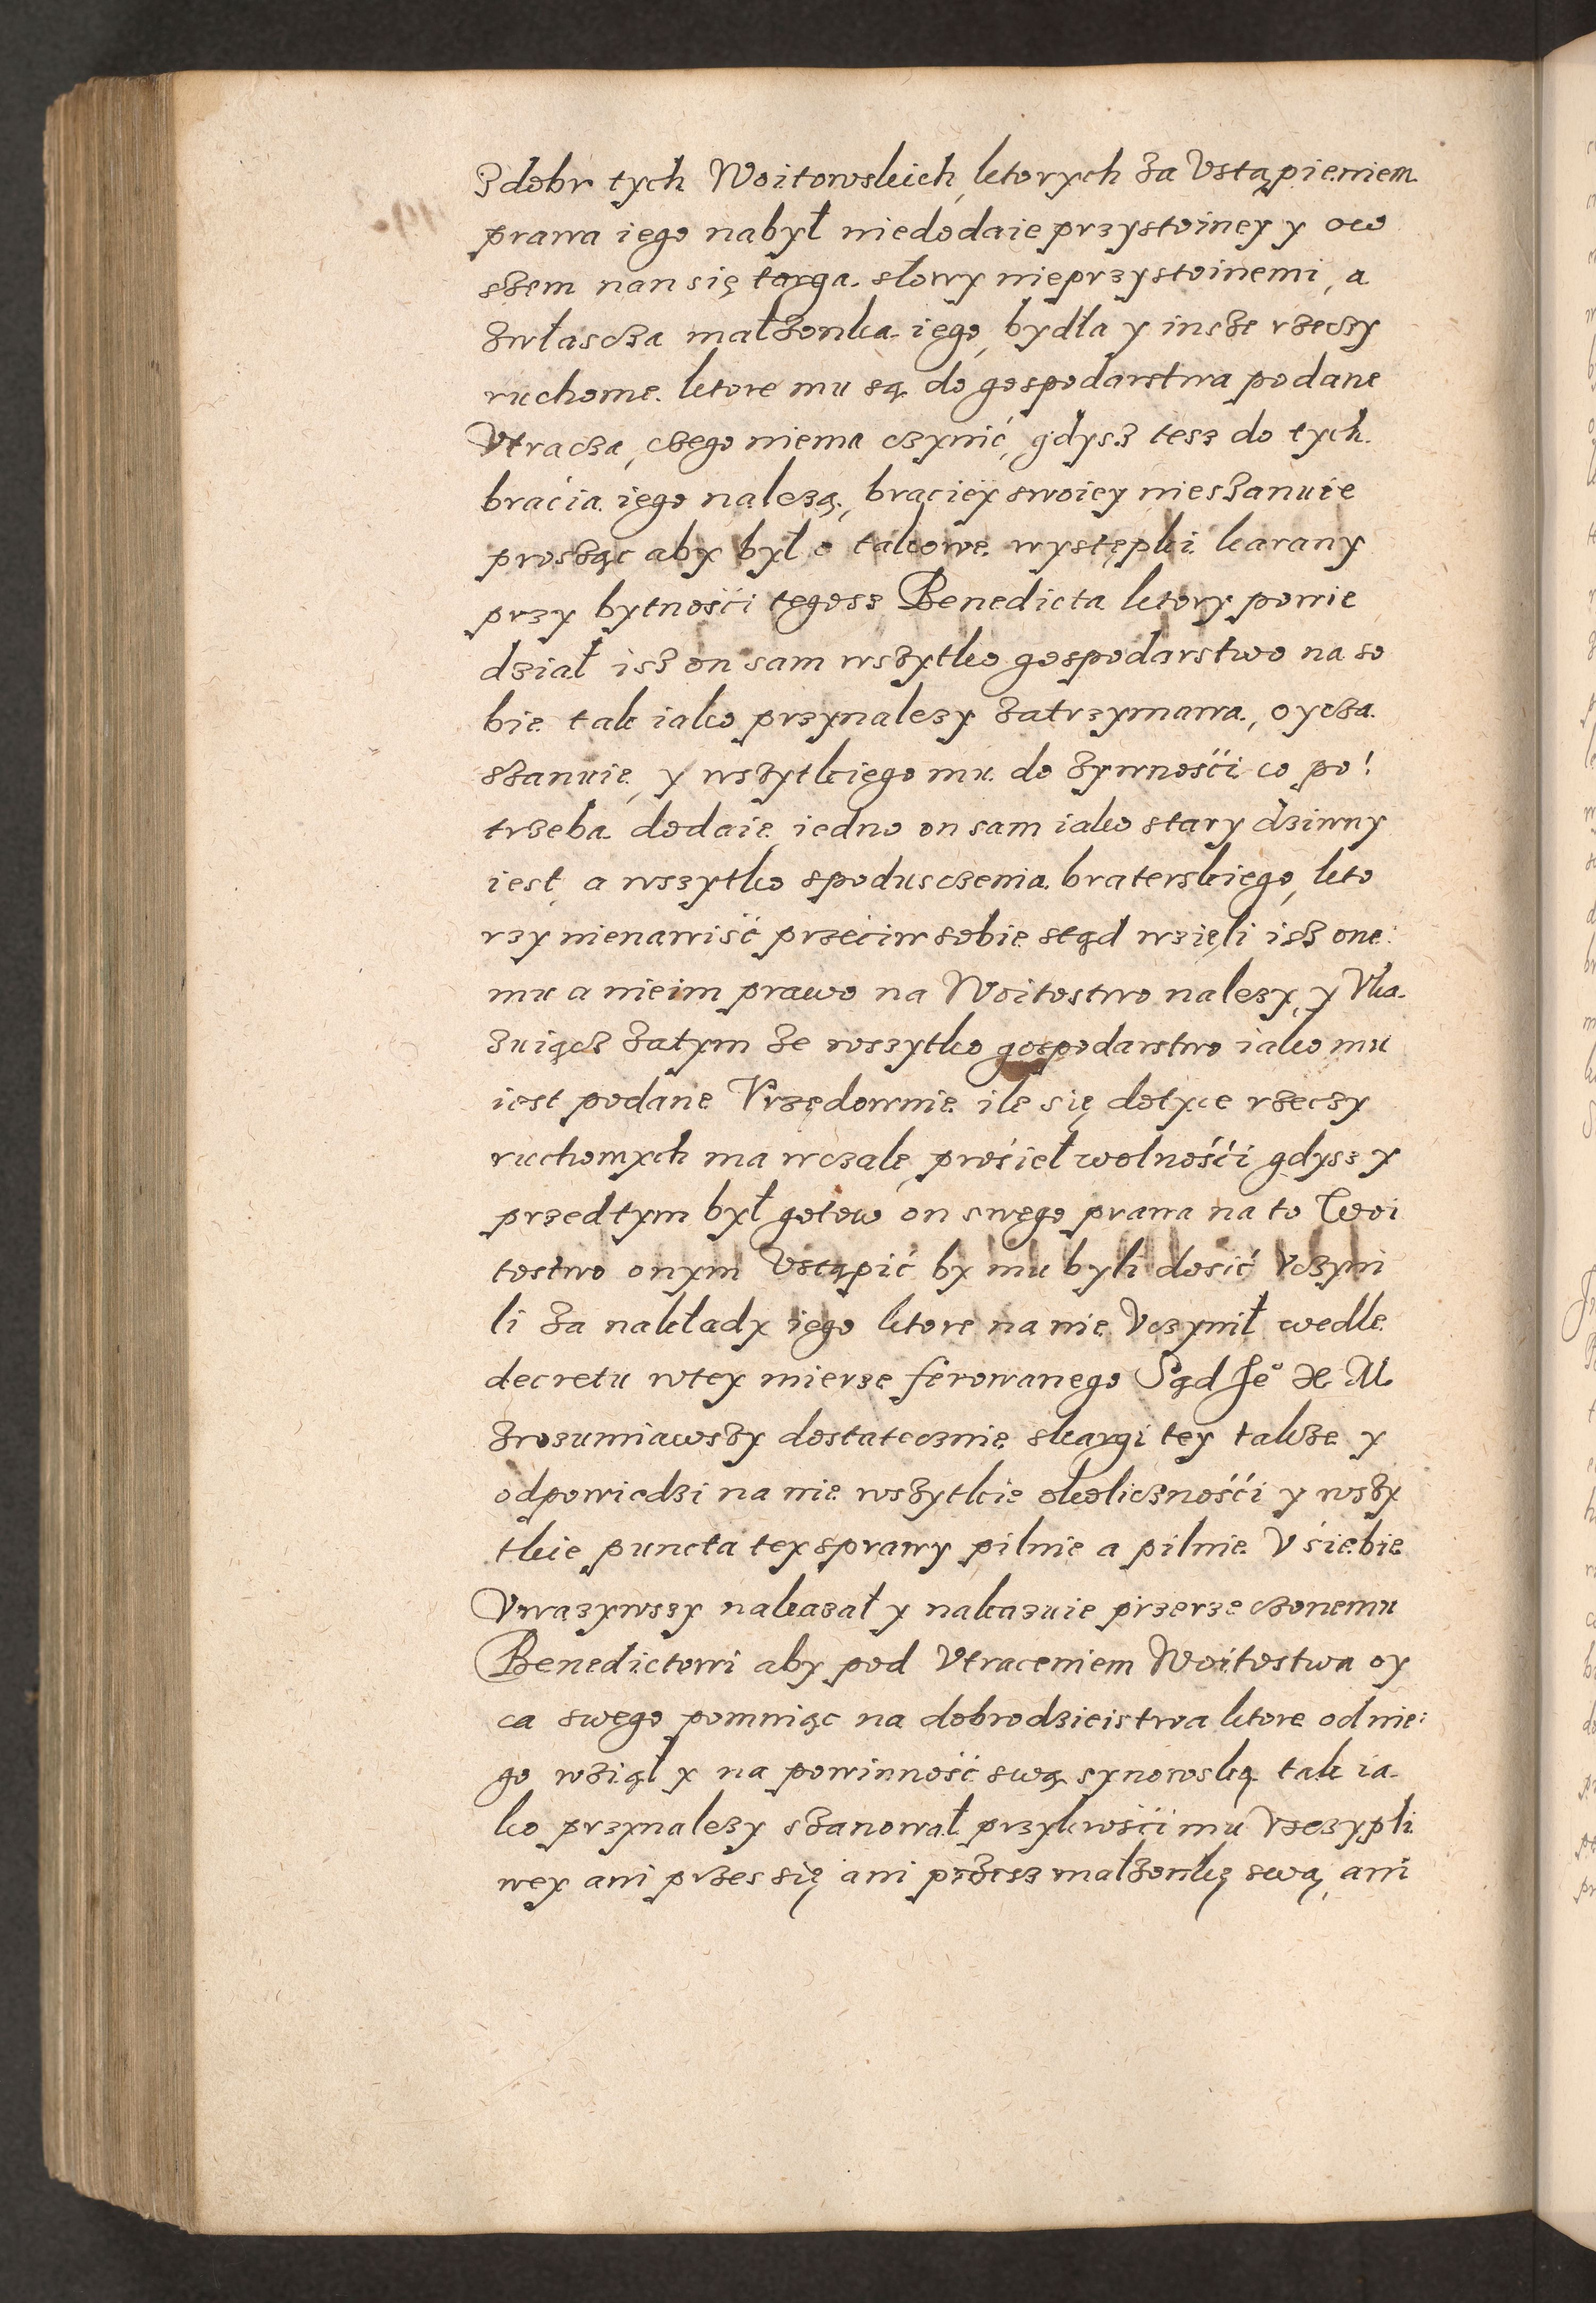 z dobr tych Woitowskich, ktorych za Vstąpieniem
prawa iego nabył niedodaie przystoiney y ow
szem nan się targa słowy nieprzystoinemi, a
zwłascza małzonka iego, bydła y insze rzeczy
ruchome ktore mu są do gospodarstwa podane
Vtracza, czego niema czynić, gdysz tesz do tych
braćia iego nalezą, braciey swoiey nieszanuie
prosząc aby był o takowe występki karany
przy bytnośći tegosz Benedicta ktory powie
dział isz on sam wszytko gospodarstwo na so
bie tak iako przynalezy zatrzymawa, oycza
szanuie, y wszytkiego mu do zywnośći co po:
trzeba dodaie, iedno on sam iako stary dziwny
iest, a wszytko spodusczenia braterskiego, kto
rzy nienawiść przeciw sobie stąd wzięli isz one:
mu a nieim prawo na Woitostwo nalezy, y Vka
zuiącz zatym ze wszytko gospodarstwo iako mu
iest podane Vrzędownie ile się dotyce rzeczy
ruchomych ma wczale, prośieł wolnośći gdysz y
przedtym był gotow on swego prawa na to Woi
tostwo onym Vstąpić by mu byli dosić Vczyni
li za nakłady iego ktore na nie Vczynił wedle
decretu wtey mierze ferowanego Sąd Je° K M
zrozumiawszy dostatecznie skargi tey takze y
odpowiedzi na nie wszytkie okolicznośći y wszy
tkie puncta tey sprawy pilnie a pilnie V śiebie
Vwazywszy nakazał y nakazuie przerzeczonemu
Benedictowi aby pod Vtraceniem Woitostwa oy
ca swego pomniąc na dobrodzieistwa ktore od nie:
go wziął y na powinność swą synowską tak ia
ko przynalezy szanował przykrośći mu Vsczypli
wey ani przes się ani przesz małzonkę swą, ani